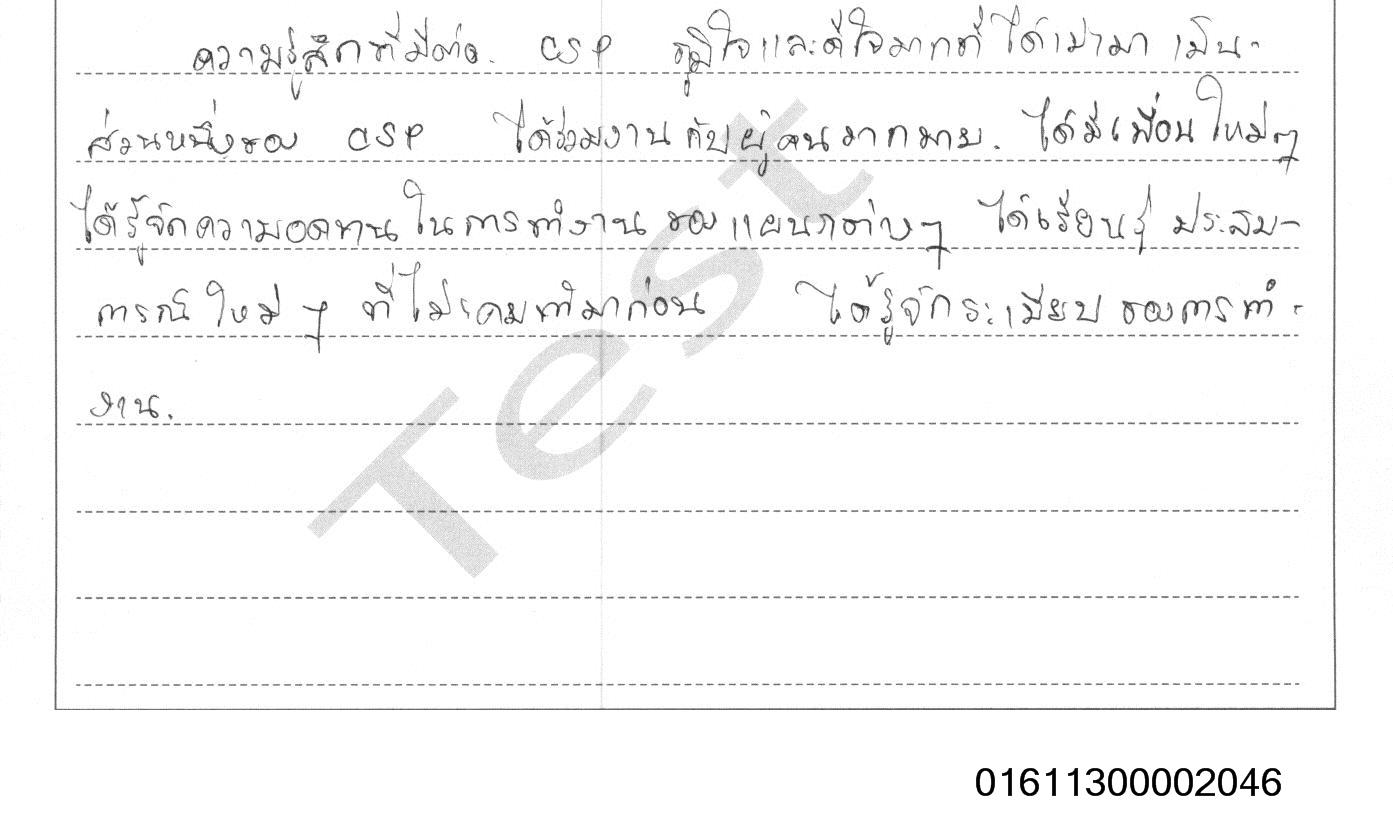 ความรู้สึกที่มีต่อ. CSP ภูมิใจและดีใจมากที่ได้เข้ามาเป็น-
ส่วนหนึ่งของ CSP ได้ร่วมงานกับผู้คนมากมาย. ได้มีเพื่อนใหม่ๆ
ได้รู้จักความอดทนในการทำงานของแผนกต่างๆ ได้เรียนรู้ ประสบ-
การณ์ใหม่ ๆ ที่ไม่เคยทำมาก่อน ได้รู้จักระเบียบของการทำ-
งาน.
Test
01611300002046